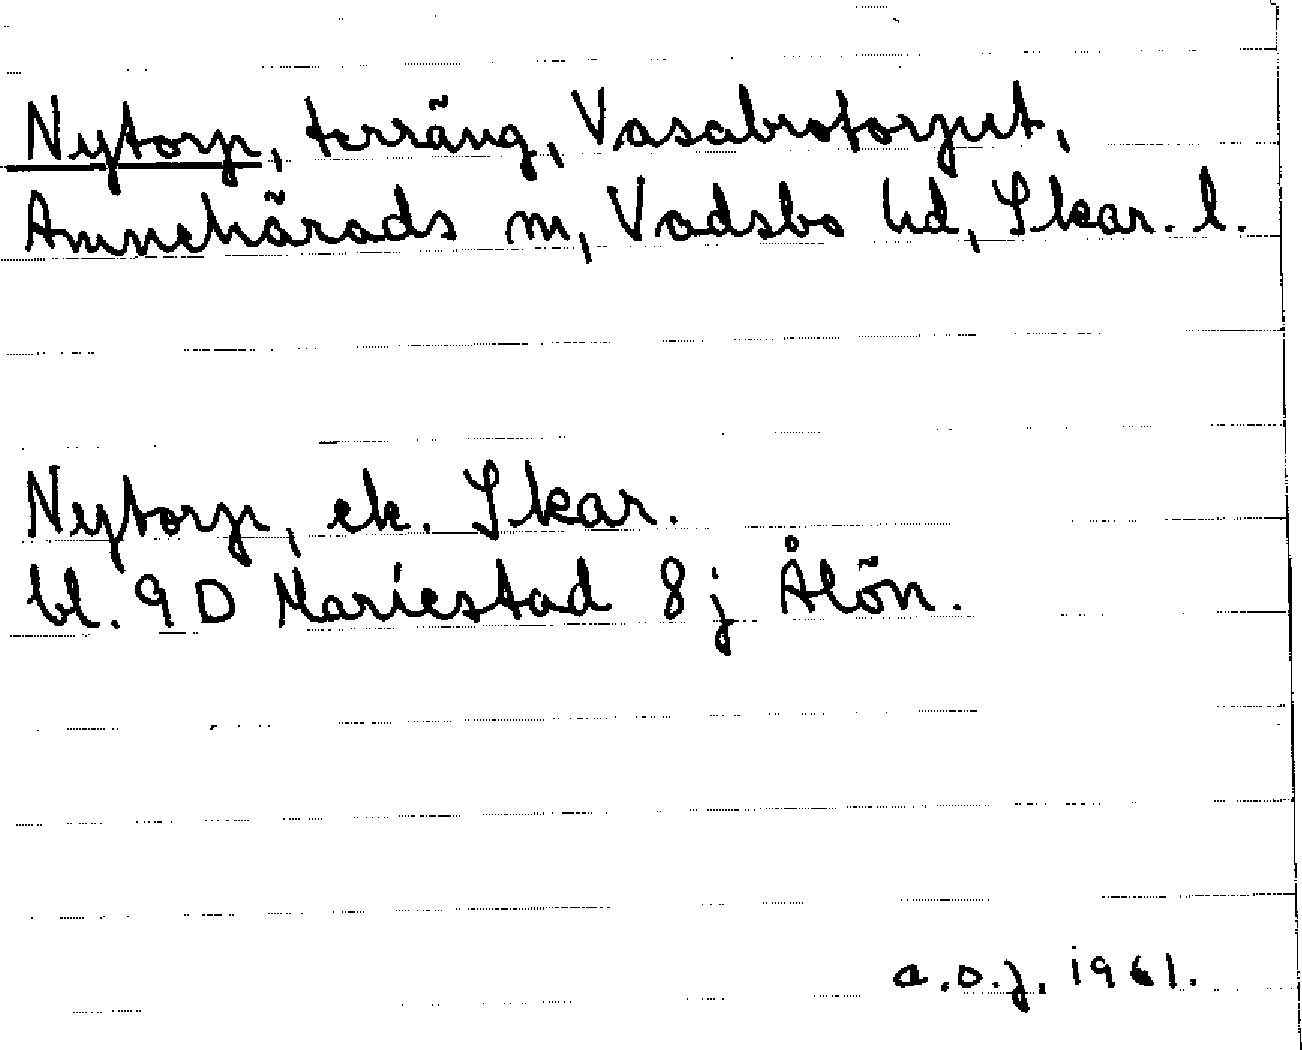 Nytorp, terräng, Vasabrotorpet,
Amnehärads sn, Vadsbo hd, Skar. l.
Nytorp, ek. Skar.
bl. 9D Mariestad 8j Ålön.
a.o.j. 1961.